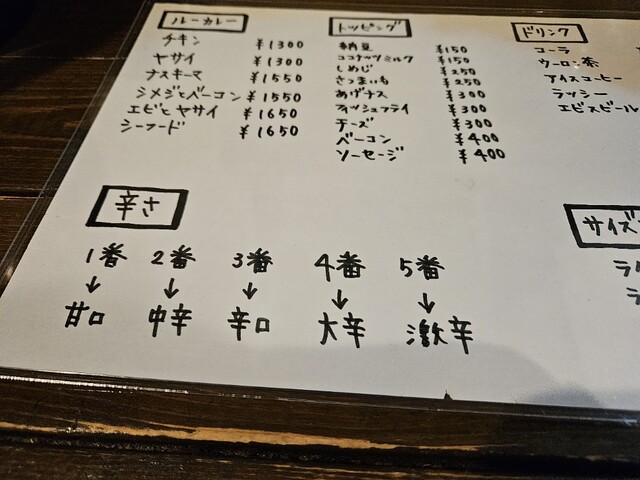 ルーカレー
チキン ¥1300
ヤサイ ¥1300
ナスキーマ ¥1550
シメジとベーコン ¥1550
エビとヤサイ ¥1650
シーフード ¥1650
トッピング
納豆 ¥150
ココナッツミルク ¥150
しめじ ¥250
さつまいも ¥250
あげナス ¥300
フィッシュフライ ¥300
チーズ ¥300
ベーコン ¥400
ソーセージ ¥400
ドリンク
コーラ
ウーロン茶
アイスコーヒー
ラッシー
エビスビール
辛さ
1番 2番 3番 4番 5番
↓ ↓ ↓ ↓ ↓
甘口 中辛 辛口 大辛 激辛
サイズ